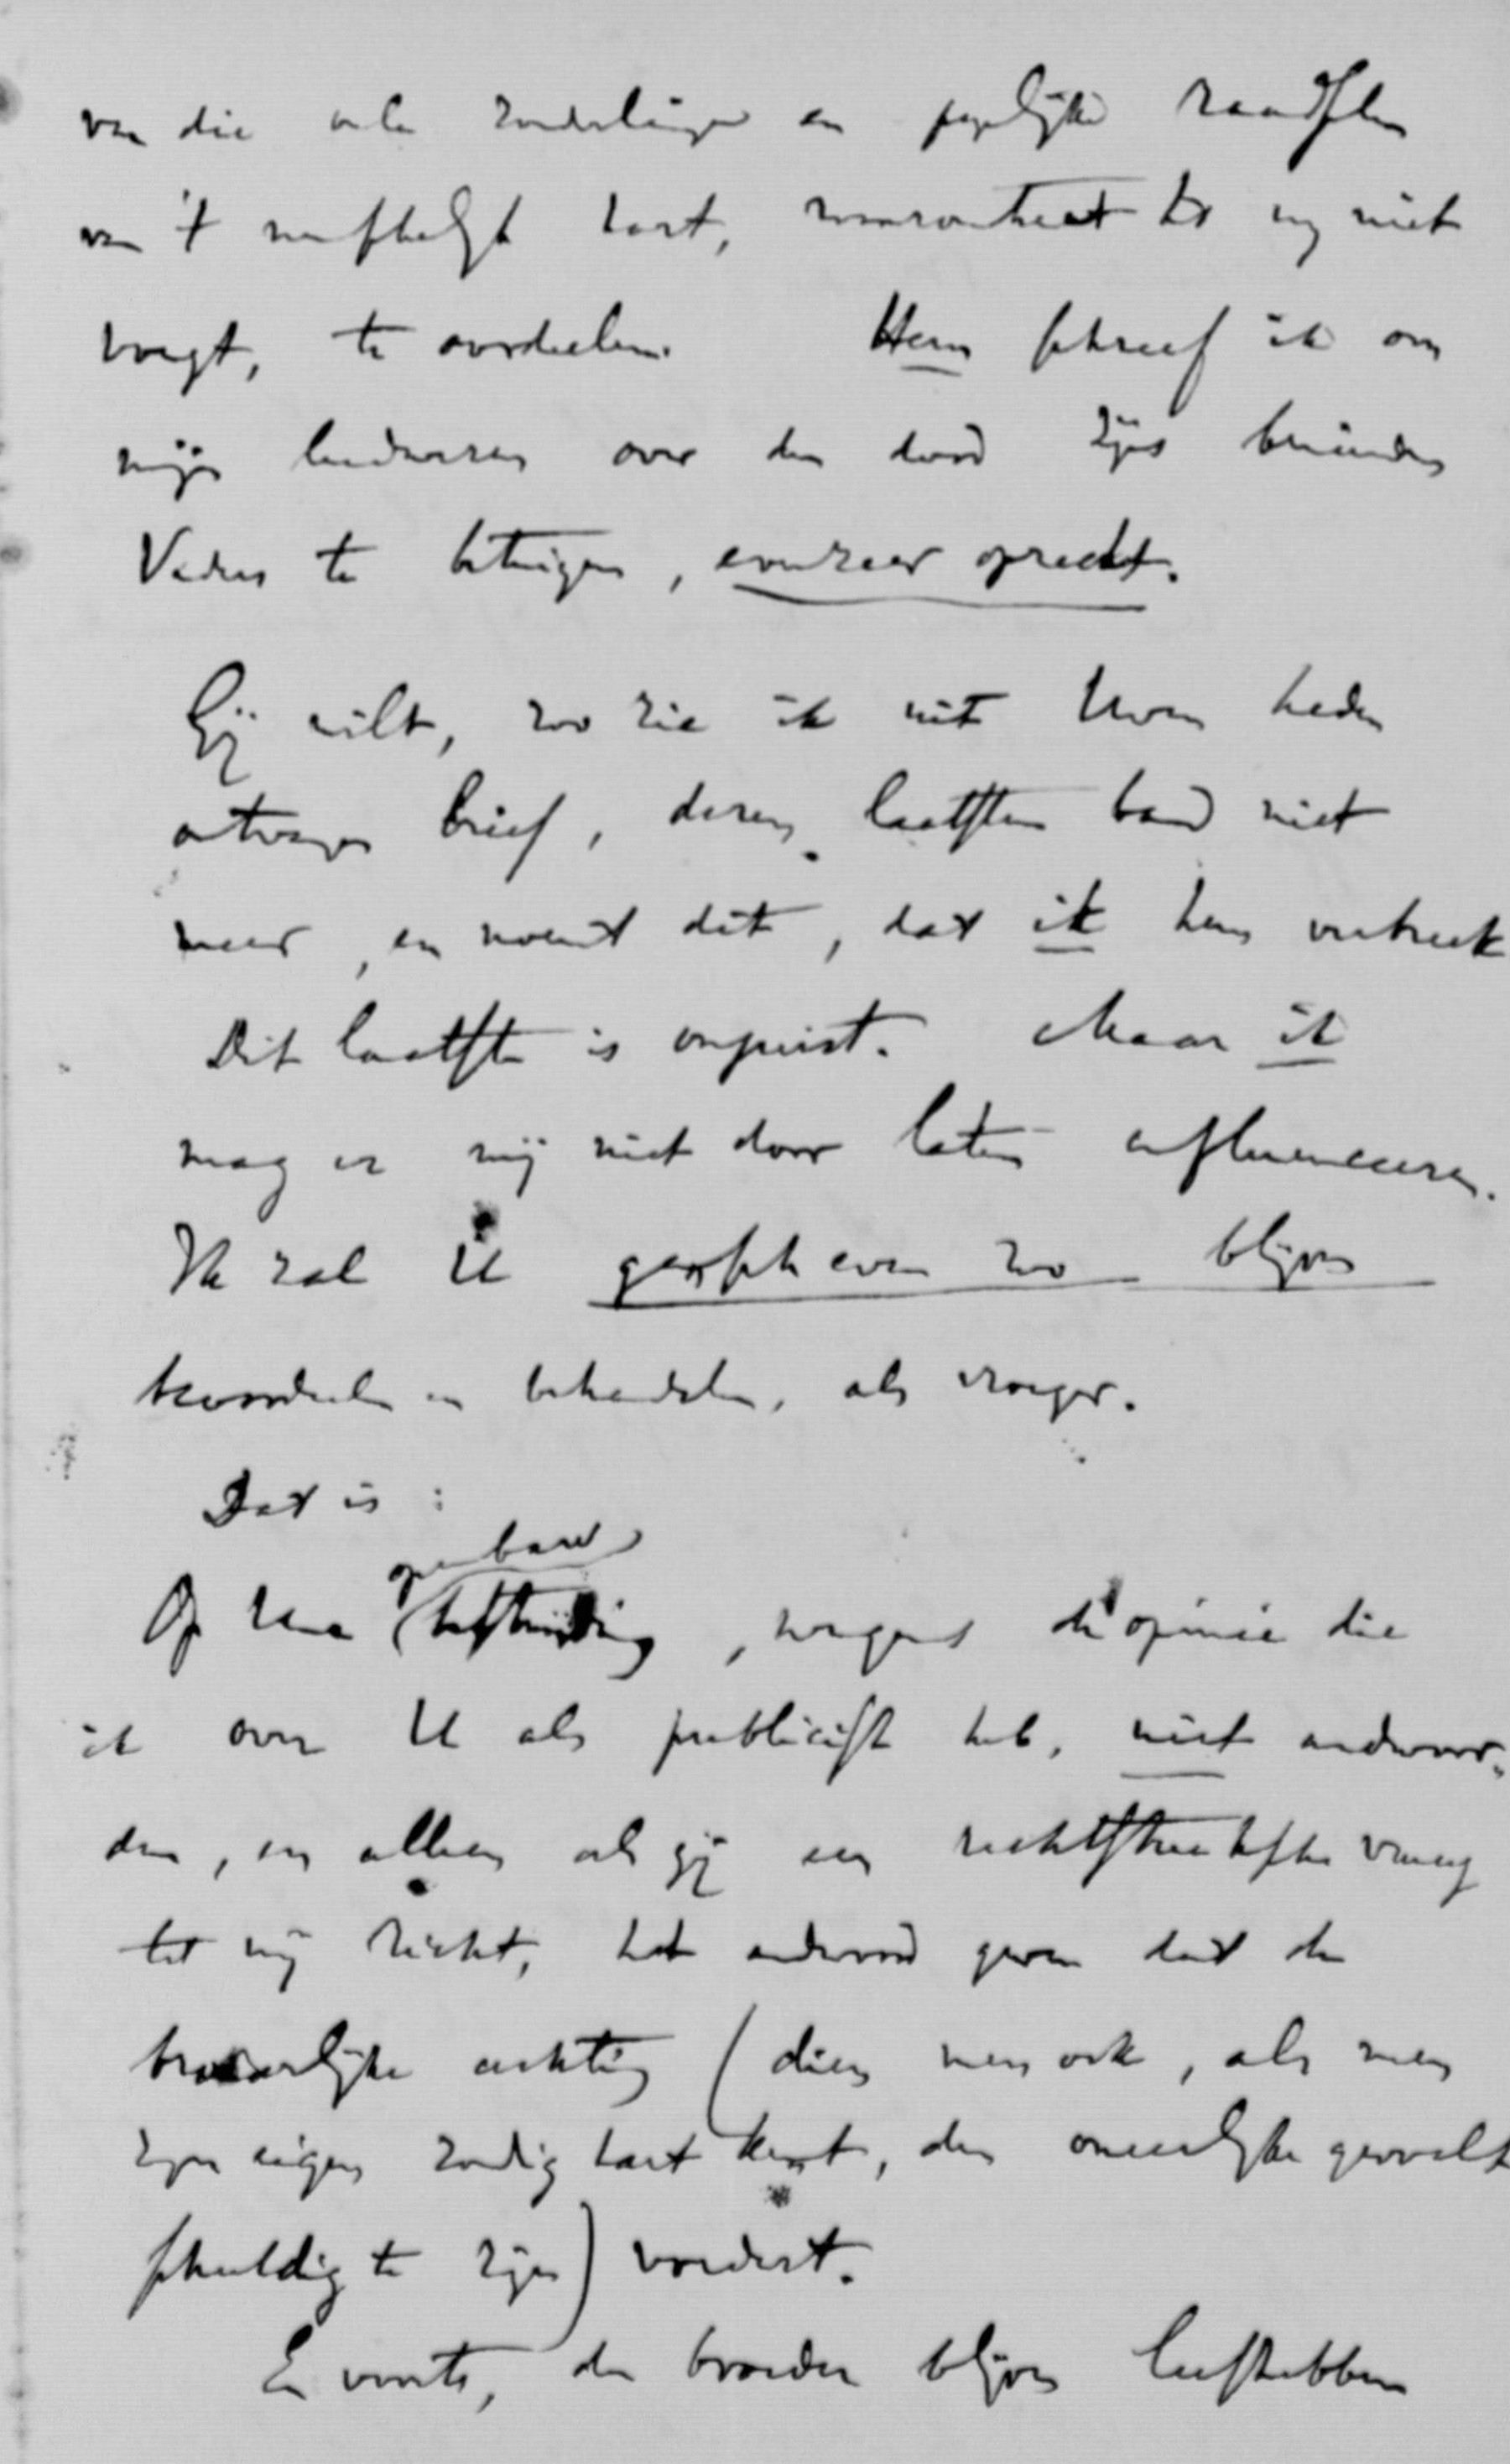 van die vele zonderlinge en pijnlijke raadselen
van 't menschelijk hart, waarover het mij niet
voegt, te oordeelen. Hem schreef ik om
mijn leedwezen over den dood zijns beminden
Vaders te betuigen, evenzeer oprecht.
Gij wilt, zoo zie ik uit Uwen heden
ontvangen brief, dezen laatsten band niet
meer, en noemt dit, dat ik hem verbreek
Dit laatste is onjuist. Maar ik
mag er mij niet door laten influenceeren.
Ik zal U geestelijk even zoo blijven
beoordeelen en behandelen, als vroeger.
Dat is:
Op Uwe openbare bestrijding, wegens de opinie die
ik over U als publicist heb, niet andwoor-
den, en alleen als gij een rechtstreeksche vraag
tot mij richt, het andwoord geven dat de
broederlijke achting (dien men ook, als men
zijn eigen zondig hart kent, den oneerlijke gevoelt
schuldig te zijn) vordert.
En voorts, den broeder blijven liefhebben